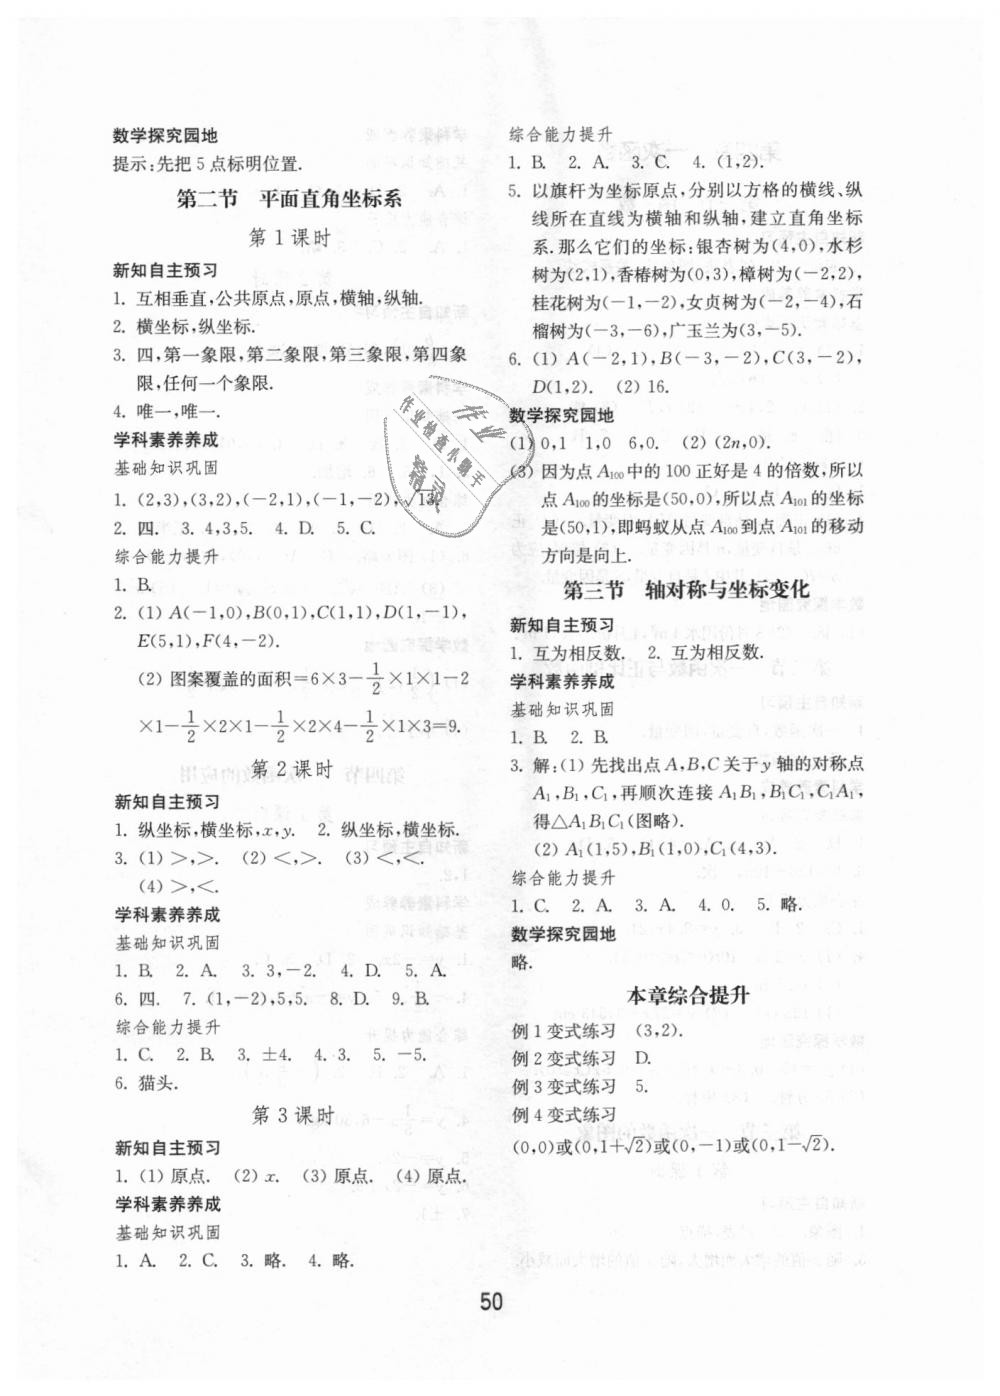 数学探究园地
提示:先把5点标明位置.
第二节 平面直角坐标系
第1课时
新知自主预习
1. 互相垂直,公共原点,原点,横轴,纵轴.
2. 横坐标,纵坐标.
3. 四,第一象限,第二象限,第三象限,第四象
限,任何一个象限.
4. 唯一,唯一.
学科素养养成
基础知识巩固
1. (2,3),(3,2),(-2,1),(-1,-2),√13.
2. 四. 3. 4,3,5. 4. D. 5. C.
综合能力提升
1. B.
2. (1) A(-1,0),B(0,1),C(1,1),D(1,-1),
E(5,1),F(4,-2).
(2) 图案覆盖的面积=6×3-1/2×1×1-2
×1-1/2×2×1-1/2×2×4-1/2×1×3=9.
第2课时
新知自主预习
1. 纵坐标,横坐标,x,y. 2. 纵坐标,横坐标.
3. (1) >,>. (2) <,>. (3) <,<.
(4) >,<.
学科素养养成
基础知识巩固
1. B. 2. A. 3. 3,-2. 4. D. 5. A.
6. 四. 7. (1,-2),5,5. 8. D. 9. B.
综合能力提升
1. C. 2. B. 3. ±4. 4. 3. 5. -5.
6. 猫头.
第3课时
新知自主预习
1. (1) 原点. (2) x. (3) 原点. (4) 原点.
学科素养养成
基础知识巩固
1. A. 2. C. 3. 略. 4. 略.
综合能力提升
1. B. 2. A. 3. C. 4. (1,2).
5. 以旗杆为坐标原点,分别以方格的横线、纵
线所在直线为横轴和纵轴,建立直角坐标
系.那么它们的坐标:银杏树为(4,0),水杉
树为(2,1),香椿树为(0,3),樟树为(-2,2),
桂花树为(-1,-2),女贞树为(-2,-4),石
榴树为(-3,-6),广玉兰为(3,-5).
6. (1) A(-2,1),B(-3,-2),C(3,-2),
D(1,2). (2) 16.
数学探究园地
(1) 0,1 1,0 6,0. (2) (2n,0).
(3) 因为点A₁₀₀中的100正好是4的倍数,所以
点A₁₀₀的坐标是(50,0),所以点A₁₀₁的坐标
是(50,1),即蚂蚁从点A₁₀₀到点A₁₀₁的移动
方向是向上.
第三节 轴对称与坐标变化
新知自主预习
1. 互为相反数. 2. 互为相反数.
学科素养养成
基础知识巩固
1. B. 2. B.
3. 解:(1) 先找出点A,B,C关于y轴的对称点
A₁,B₁,C₁,再顺次连接A₁B₁,B₁C₁,C₁A₁,
得△A₁B₁C₁(图略).
(2) A₁(1,5),B₁(1,0),C₁(4,3).
综合能力提升
1. C. 2. A. 3. A. 4. 0. 5. 略.
数学探究园地
略.
本章综合提升
例1变式练习 (3,2).
例2变式练习 D.
例3变式练习 5.
例4变式练习
(0,0)或(0,1+√2)或(0,-1)或(0,1-√2).
作业
作业检查小助手
精灵
50